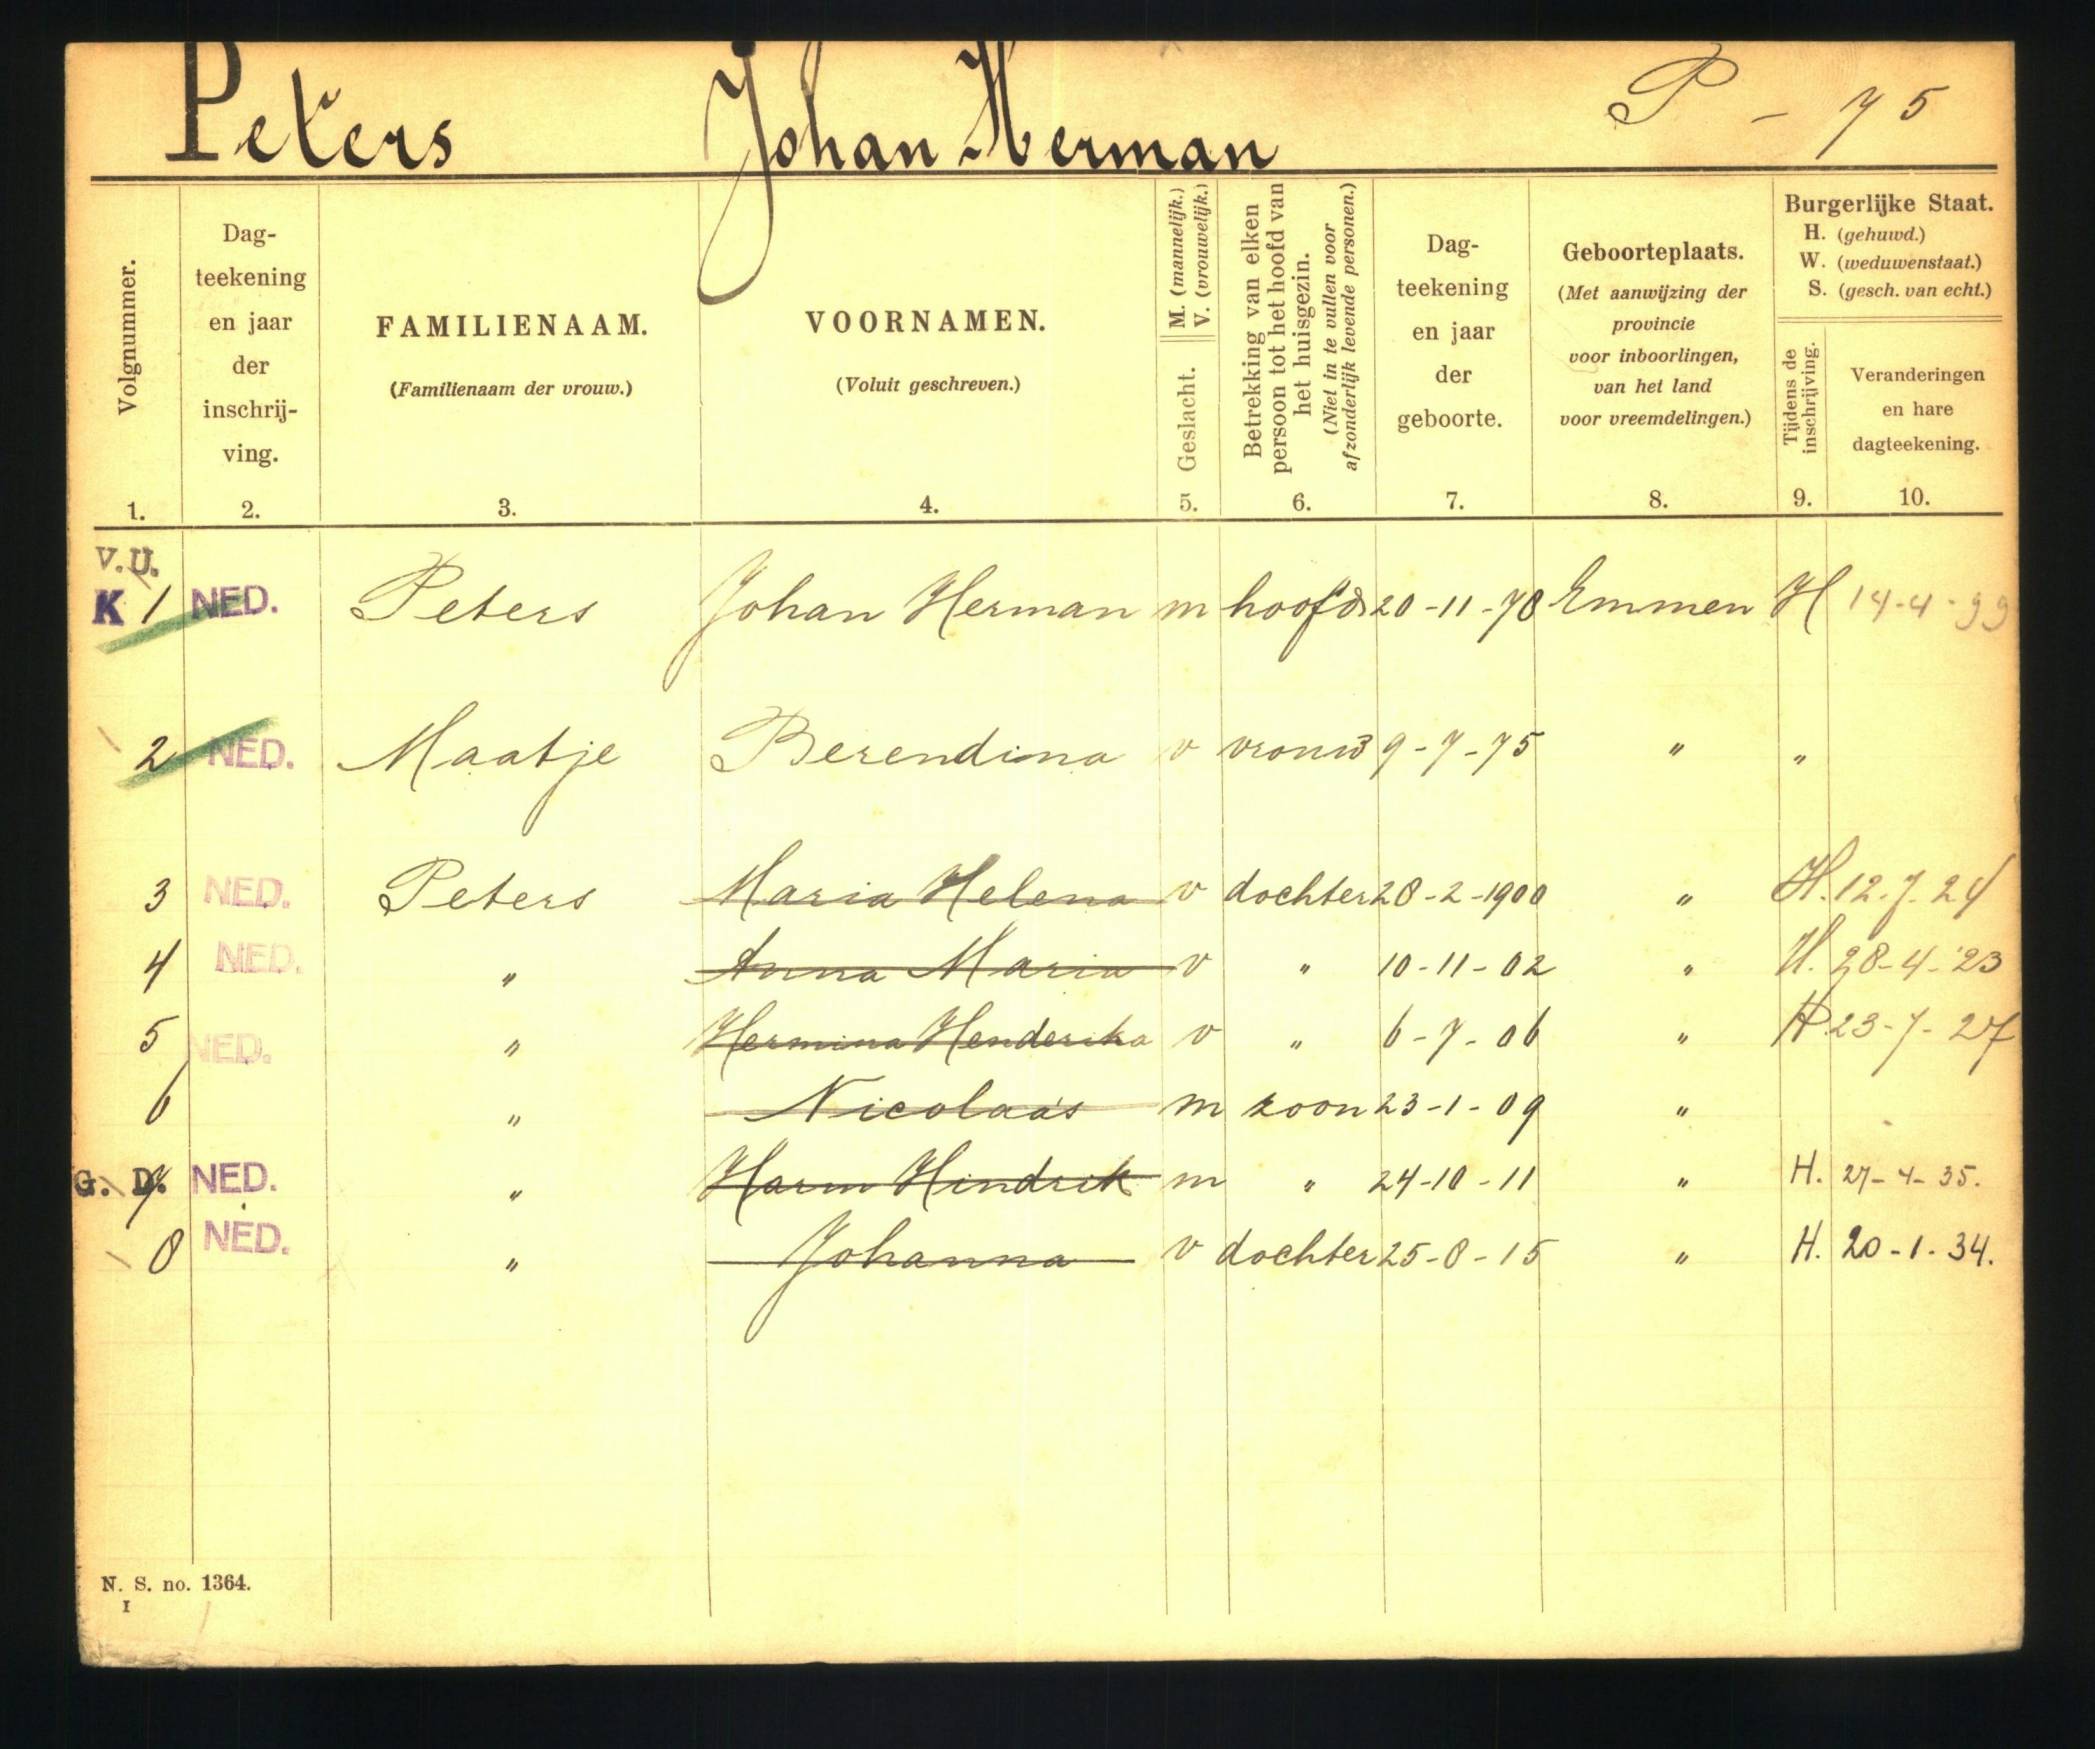 Peters Johan Herman P - 75
Volgnummer.
1.
Dag-
teekening
en jaar
der
inschrij-
ving.
2.
FAMILIENAAM.
(Familienaam der vrouw.)
3.
VOORNAMEN.
(Voluit geschreven.)
4.
M. (mannelijk.)
V. (vrouwelijk.)
Geslacht.
5.
Betrekking van elken
persoon tot het hoofd van
het huisgezin.
(Niet in te vullen voor
afzonderlijk levende personen.)
6.
Dag-
teekening
en jaar
der
geboorte.
7.
Geboorteplaats.
(Met aanwijzing der
provincie
voor inboorlingen,
van het land
voor vreemdelingen.)
8.
Burgerlijke Staat.
H. (gehuwd.)
W. (weduwenstaat.)
S. (gesch. van echt.)
Tijdens de
inschrijving.
9.
Veranderingen
en hare
dagteekening.
10.
V.U.
K 1 NED. Peters Johan Herman m hoofd 20-11-78 Emmen H 14-4-99
2 NED. Maatje Berendina v vrouw 9-7-75 " "
3 NED. Peters Maria Helena v dochter 28-2-1900 " H. 12.7.24
4 NED. " Anna Maria v " 10-11-02 " H. 28-4-'23
5 NED. " Hermina Henderika v " 6-7-06 " H. 23-7-27
6 " Nicolaas m zoon 23-1-09 "
G. D. 7 NED. " Harm Hindrik m " 24-10-11 " H. 27-4-35.
8 NED. " Johanna v dochter 25-8-15 " H. 20-1-34.
N. S. no. 1364.
I